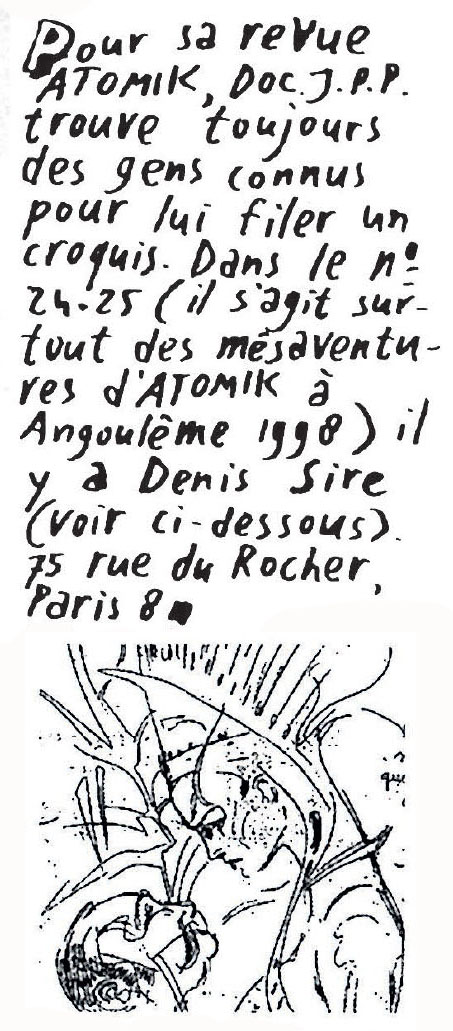 Pour sa revue
ATOMIK, Doc. J.P.P.
trouve toujours
des gens connus
pour lui filer un
croquis. Dans le nº
24-25 (il s'agit sur-
tout des mésaventu-
res d'ATOMIK à
Angoulême 1998) il
y a Denis Sire
(voir ci-dessous).
75 rue du Rocher,
Paris 8